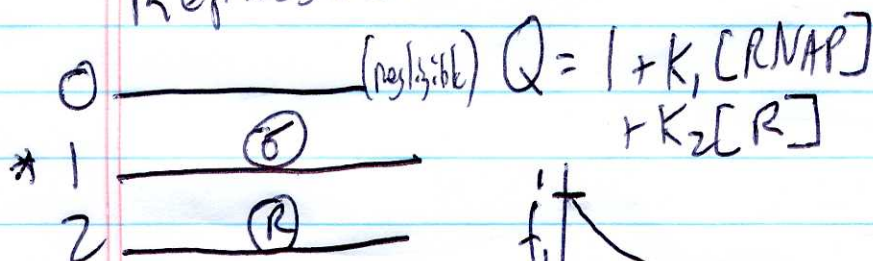 0 (negligible) Q = 1 + K₁ [RNAP]
+ K₂ [R]
* 1 σ
2 R
1
f₁